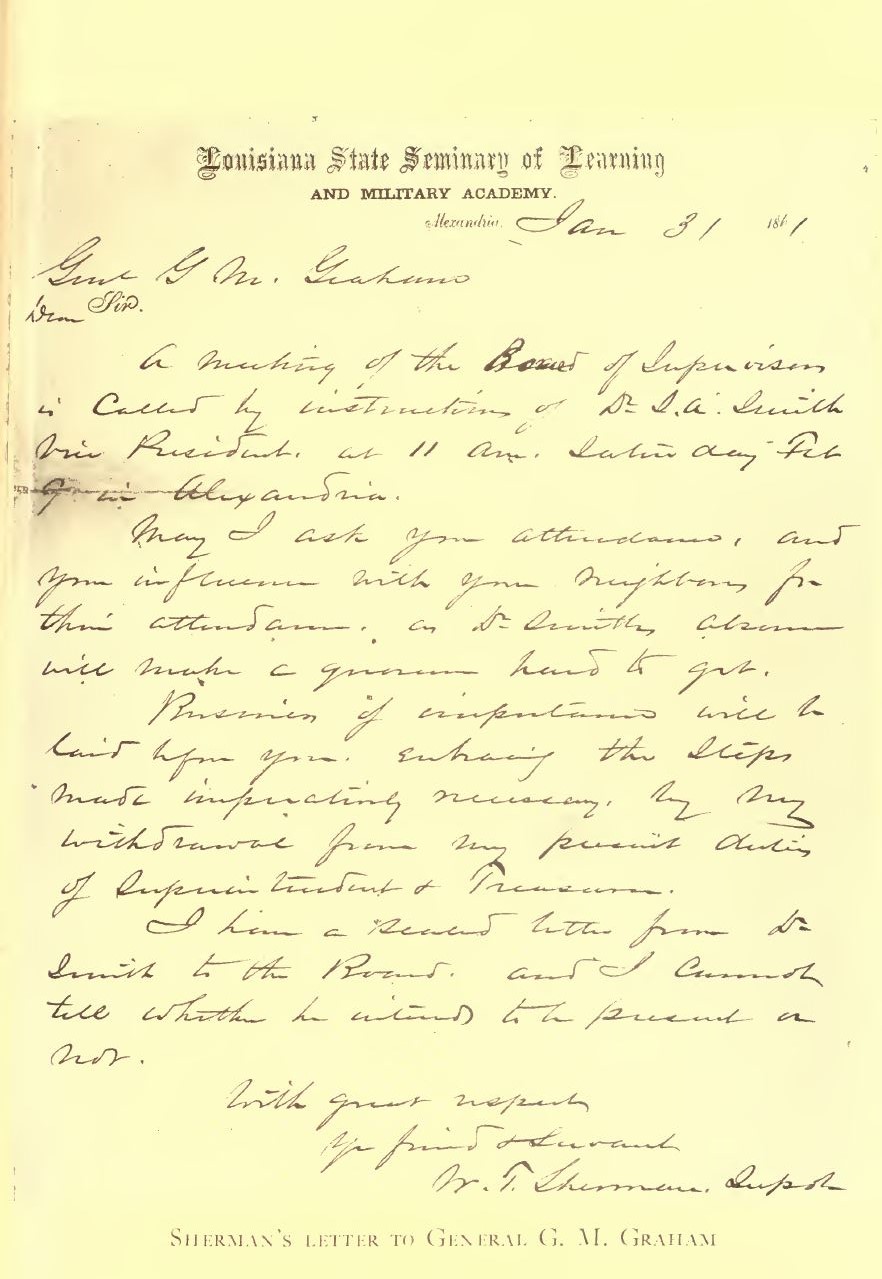 Louisiana State Seminary of Learning
AND MILITARY ACADEMY.
Alexandria, Jan 31 1861
Genl G M. Graham
Dear Sir.
A meeting of the Board of Supervisors
is called by instructions of Dr S. A. Smith
Vice President. at 11 am. Saturday Feb
9 in Alexandria.
May I ask your attendance, and
your influence with your neighbors for
their attendance. as Dr Smiths absence
will make a quorum hard to get.
Business of importance will be
laid before you. embracing the steps
made imperatively necessary, by my
withdrawal from my present duties
of Superintendent & Treasurer.
I have a sealed letter from Dr
Smith to the Board. and I cannot
tell whether he intends to be present or
not.
With great respect
Yr friend & Servant
W. T. Sherman. Supdt
SHERMAN'S LETTER TO GENERAL G. M. GRAHAM